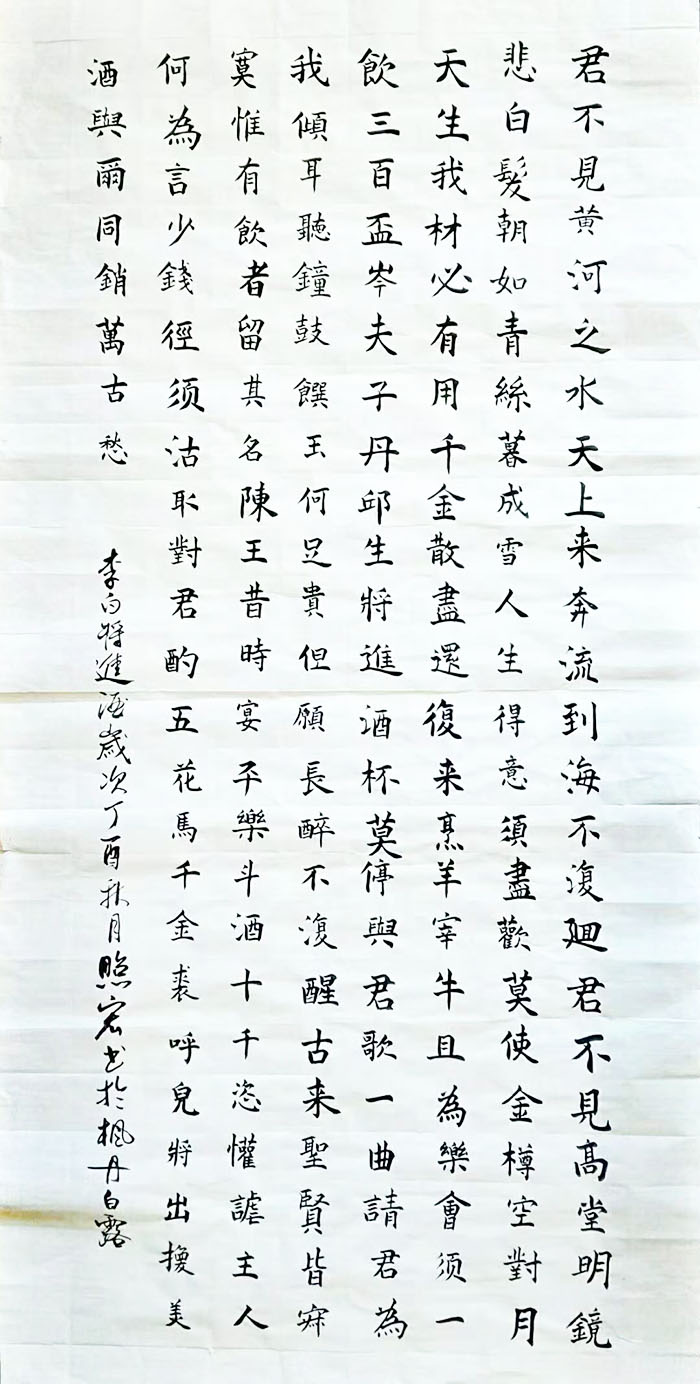 君不見黃河之水天上来奔流到海不復廻君不見高堂明鏡
悲白髮朝如青絲暮成雪人生得意須盡歡莫使金樽空對月
天生我材必有用千金散盡還復来烹羊宰牛且為樂會須一
飲三百盃岑夫子丹邱生將進酒杯莫停與君歌一曲請君為
我傾耳聽鐘鼓饌玉何足貴但願長醉不復醒古来聖賢皆寂
寞惟有飲者留其名陳王昔時宴平樂斗酒十千恣懽謔主人
何為言少錢徑须沽取對君酌五花馬千金裘呼兒將出換美
酒與爾同銷萬古愁
李白将進酒歲次丁酉秋月照宏书於楓丹白露